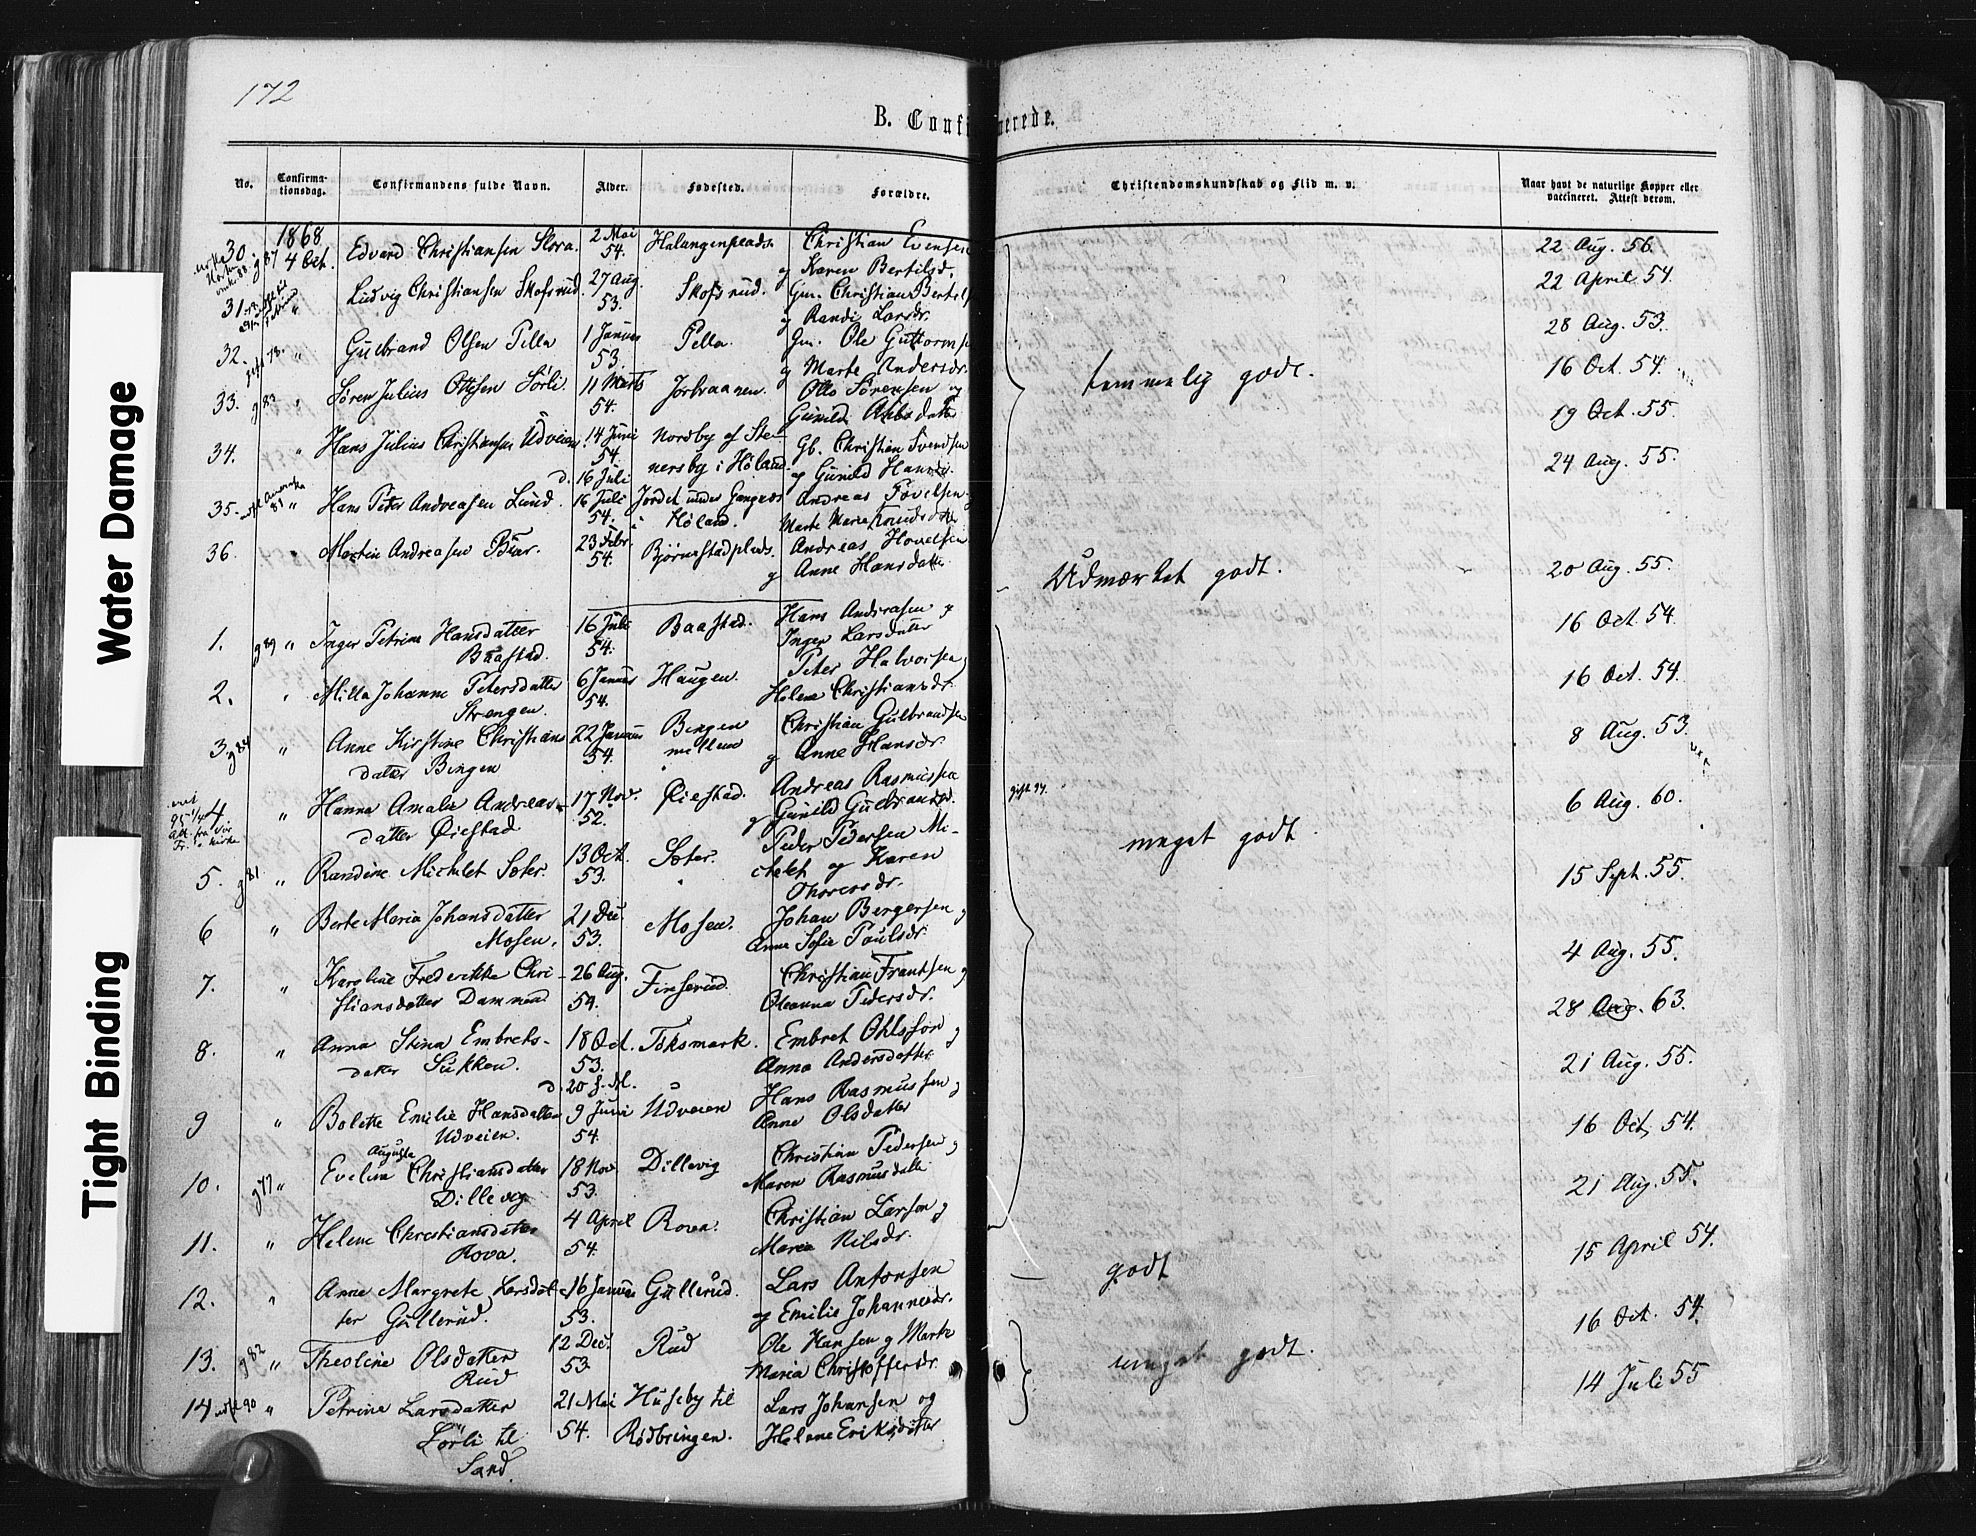 172
B. Confirmerede.
No. Confirma-tionsdag. Confirmandens fulde Navn. Alder. Fødested. Forældre. Christendomskundskab og Flid m. v. Naar havt de naturlige Kopper eller vaccineret. Attest derom.
1868
30. 4 Oct. Edvard Christiansen Slora. 2 Mai Halangenplads Christian Evensen 22 Aug. 56.
54. og Karen Bertilsd.
31. " Ludvig Christiansen Skofsrud. 27 Aug. Skofsrud. Gm. Christian Bertels 22 April 54.
53. og Randi Larsdr.
32. " Gulbrand Olsen Pella 1 Januar Pella. Gm. Ole Guttorms 28 Aug. 53.
53. og Marte Andersdr.
33. g 83 " Søren Julius Ottesen Sørli. 11 Marts Jorbraanen. Otto Sørensen og temmelig godt. 16 Oct. 54.
54. Gunild
34. " Hans Julius Christiansen Udveien 14 Juni Nordby af Ste- Gb. Christian Svendsen 19 Oct. 55.
54. nersby i Høland. og Gunild Hansd.
d. 16 Juli
35. " Hans Peter Andreasen Lund. 16 Juli Jordet under Gangnæs Andreas 24 Aug. 55.
54. i Høland. Marte Marie Knudsdatter
36. " Martin Andreasen 23 Febr. Bjørnstadplads. Andreas Hovelsen Udmærket godt. 20 Aug. 55.
54. og Anne Hansdatter
1. g 89 " Inger Petrine Hansdatter 16 Juli Baastad. Hans Andreasen og 16 Oct. 54.
Baastad. 54. Inger Larsdatter
2. " Milla Johanne Petersdatter 6 Januar Haugen. Peter Halvorsen 16 Oct. 54.
Strengen. 54. Helene Christiansdr.
3. g 84 " Anne Kirstine Christians 22 Januar Bingen Christian Gulbrandsen 8 Aug. 53.
datter Bingen 54. mellem og Anne Hansdr.
4 " Hanna Amalie Andreas- 17 Nov. Øiestad. Andreas Rasmussen gift 97. 6 Aug. 60.
datter Øiestad 52. og Gunild Gulbrandsd.
5. g 81 " Randine Michelet Sæter 13 Oct. Sæter. Peder Pedersen Mi- meget godt. 15 Sept. 55.
53. chelet og Karen
Thoresdr.
6 " Berte Maria Johansdatter 21 Dec. Mosen. Johan Bergersen og 4 Aug. 55.
Mosen. 53. Anne Sofie Poulsdr.
7. " Karoline Frederikke Chri- 26 Aug. Fireserud. Christian Frantsen og 28 Aug. 63.
stiansdatter Dammen 54. Oleanna Pedersdr.
8. " Anna Stina Embrets- 18 Oct. Toksmark. Embret Ohlsson og 21 Aug. 55.
datter Sukken. 53. Anna Andersdatter
d. 20 s. M.
9 " Bolette Emilie Hansdatter 9 Juni Udveien Hans Rasmussen og 16 Oct. 54.
Udveien. 54. Anne Olsdatter
Augusta
10. g 77 " Evelina Christiansdatter 18 Nov Dillevig Christian Pedersen og 21 Aug. 55.
Dillevig 53. Maren Rasmusdatter
11. " Helene Christiansdatter 4 April Roven. Christian Larson og 15 April 54.
Rova. 54. Maria Nilsdr.
12. " Anne Margrete Larsdat- 16 Januar Gullerud. Lars Antonsen godt 16 Oct. 54.
ter Gullerud. 53. og Emilie Johannesdr.
13. g 82 " Theoline Olsdatter 12 Dec. Rud Ole Hansen og Marte meget godt. 14 Juli 55
Rud 53 Maria Christoffersdr.
14 90 " Petrine Larsdatter 21 Mai Huseby til Lars Johansen og
Sørli til 54. Rødbringen. Helene Eriksdatter
Sand.
Water Damage
Tight Binding